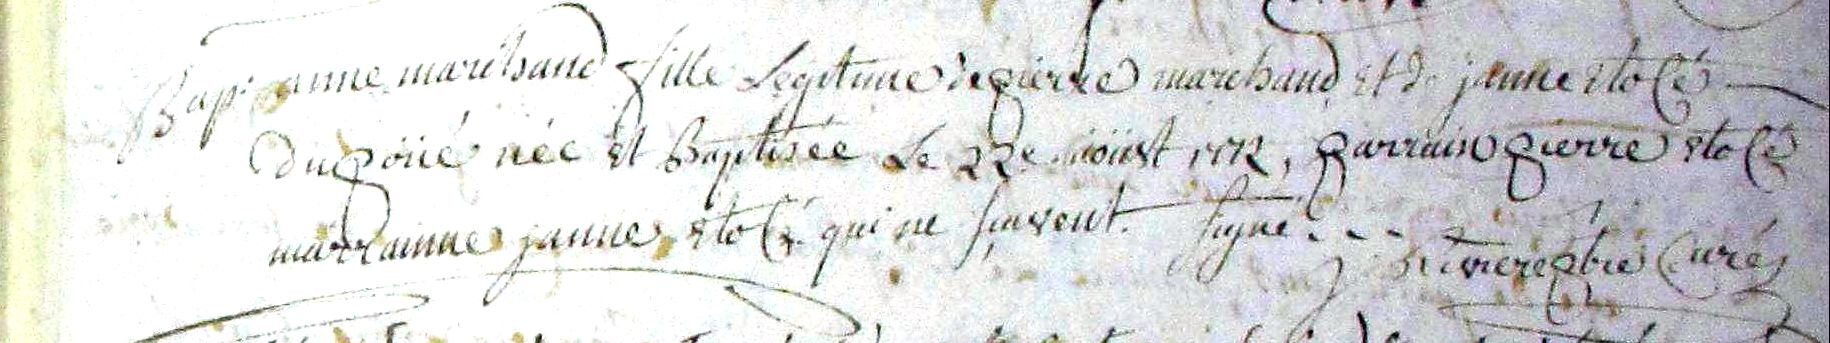 Bap: anne marchand fille Legitime de pierre marchand et de janne stocé
du poüé née et Baptisée Le 22e aoüst 1772, parrain pierre stocé
marrainne janne stocé qui ne sçavent. signé . . .
pbre Curé